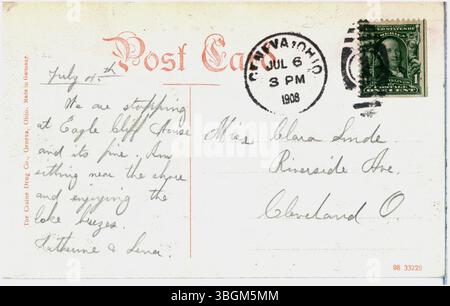 Post Card
GENEVA, OHIO.
JUL 6
3 PM
1908
1
July 4th
We are stopping
at Eagle Cliff House
and its fine. Am
sitting near the shore
and enjoying the
lake breezes.
Katherine & Lena.
Miss Clara Linde
Riverside Ave.
Cleveland O.
The Craine Drug Co., Geneva, Ohio. Made in Germany.
98 33229
alamy
Image ID: 3BGM5MM
www.alamy.com